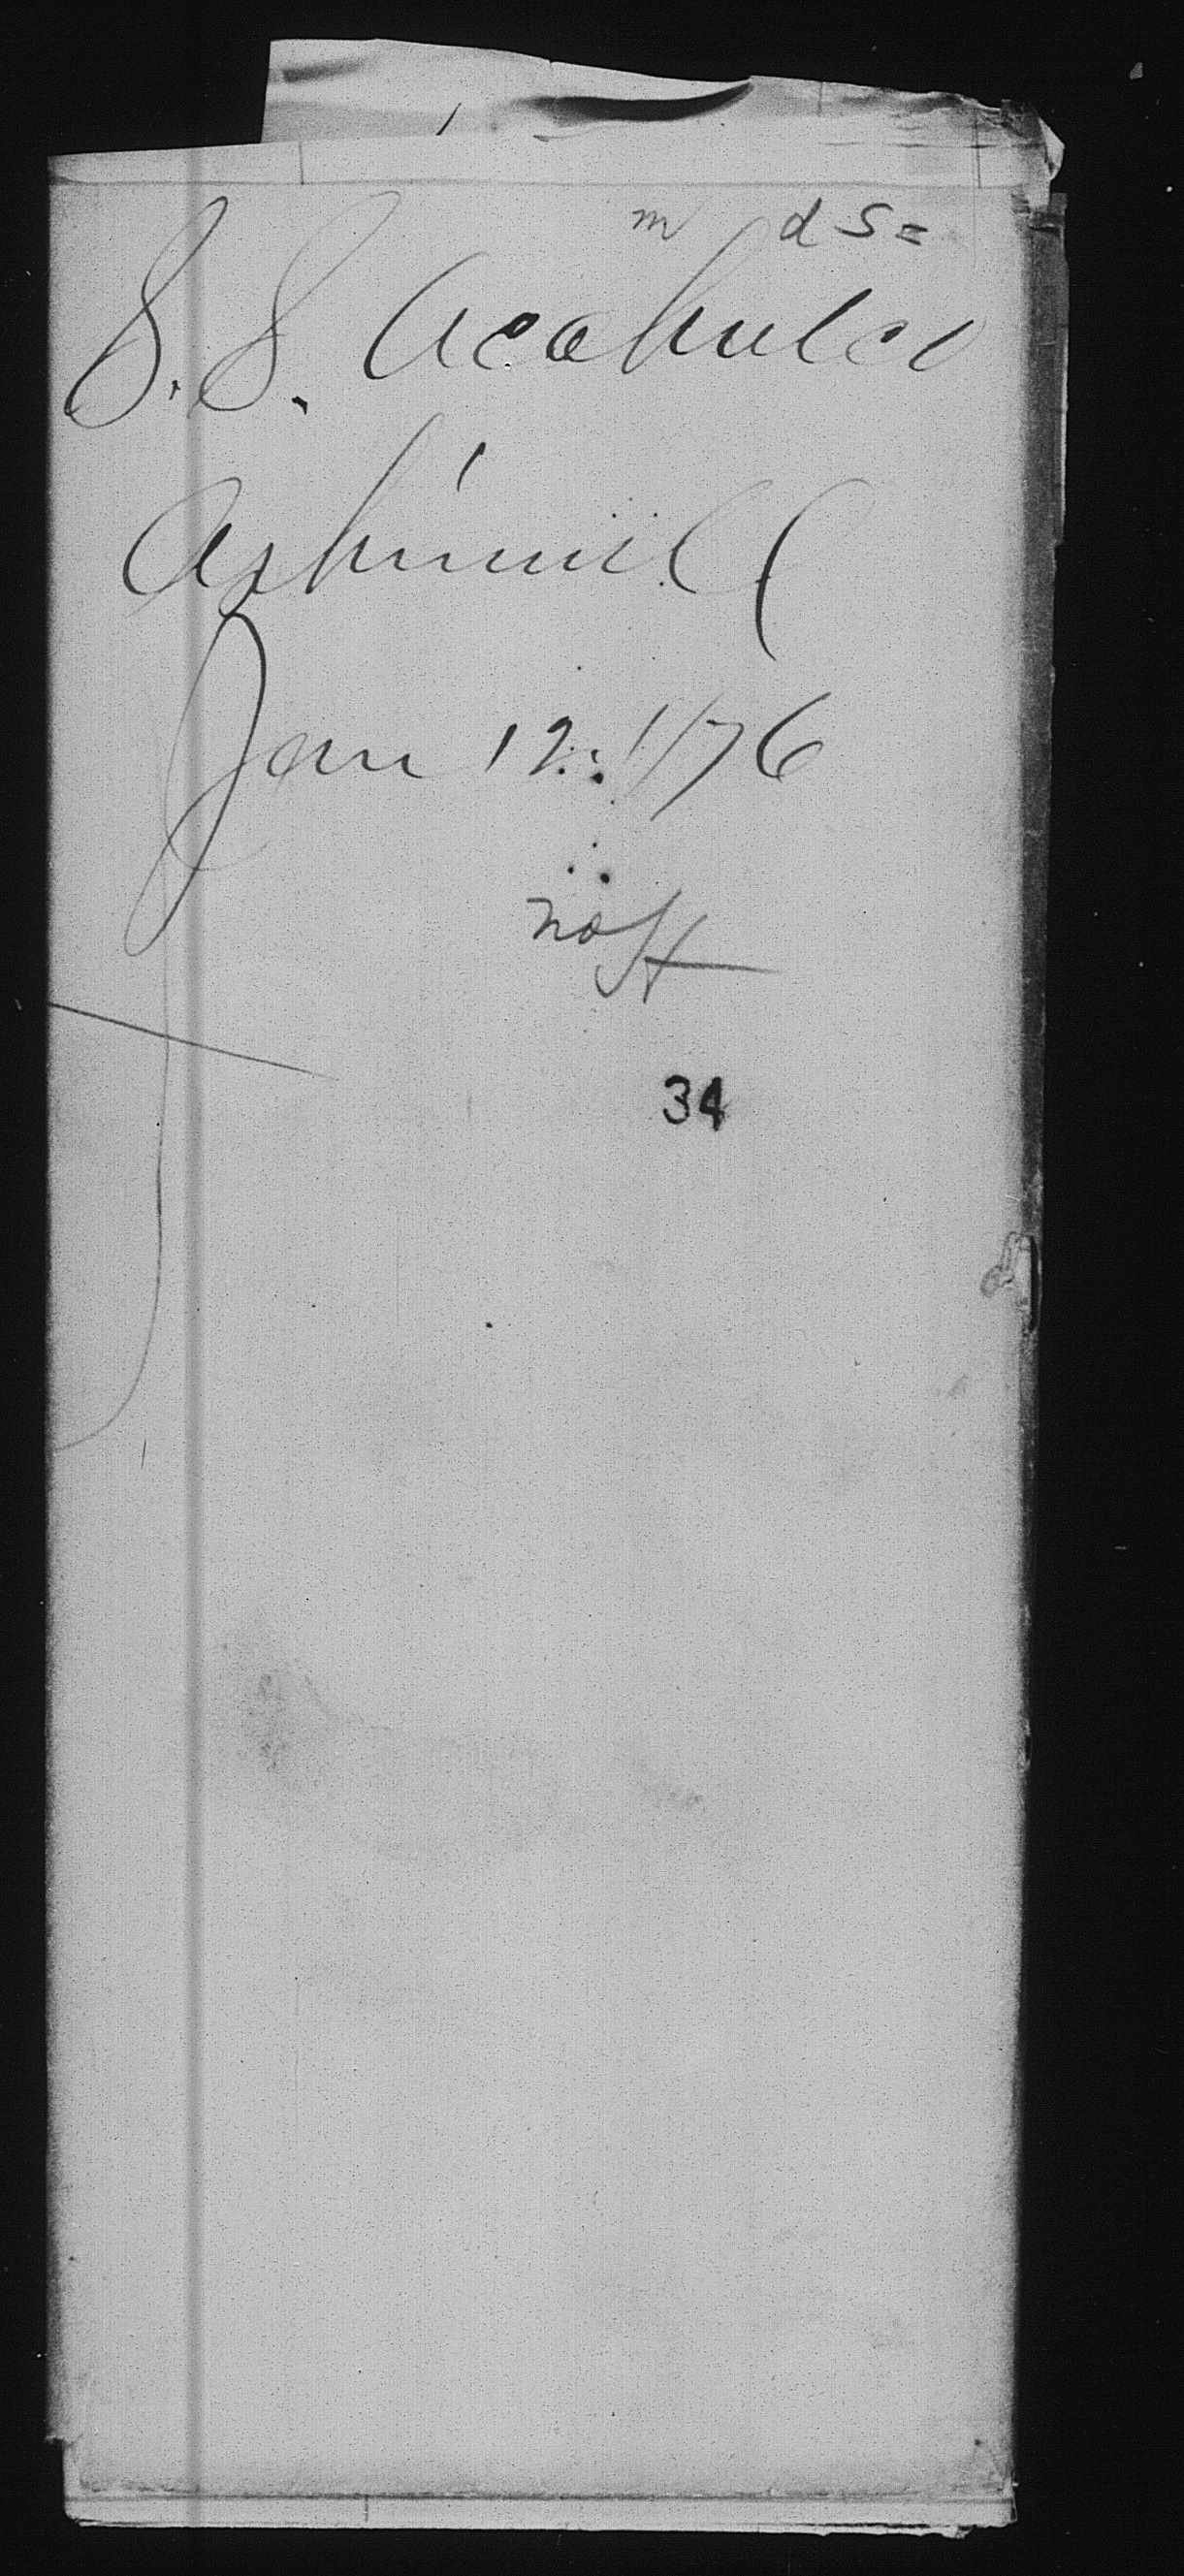 m d S=
S. S. Acapulco
Aspinwall
Jan 12. 1876
no H
34